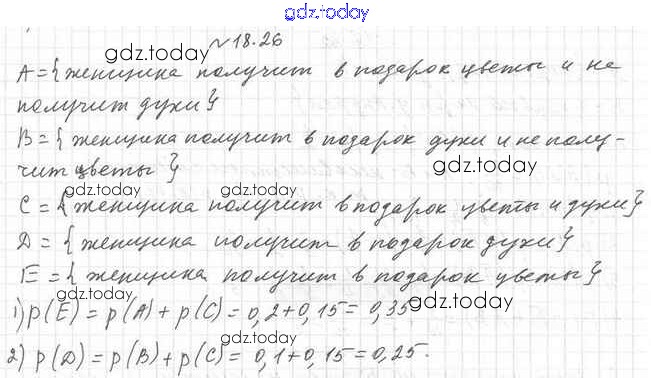 gdz.today
№ 18.26
gdz.today
gdz.today
A = {женщина получит в подарок цветы и не
получит духи}
B = {женщина получит в подарок духи и не полу-
gdz.today
чит цветы}
gdz.today
gdz.today
C = {женщина получит в подарок цветы и духи}
D = {женщина получит в подарок духи}
gdz.today
E = {женщина получит в подарок цветы}
gdz.today
gdz.today
1) p(E) = p(A) + p(C) = 0,2 + 0,15 = 0,35
2) p(D) = p(B) + p(C) = 0,1 + 0,15 = 0,25.
gdz.today